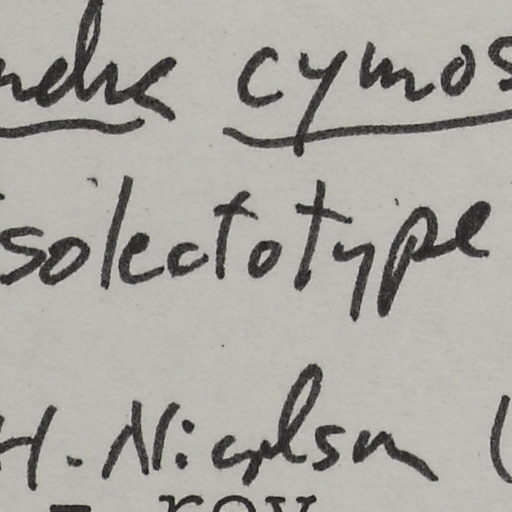 ndra cymos
isolectotype
H. Nicolson (
rev